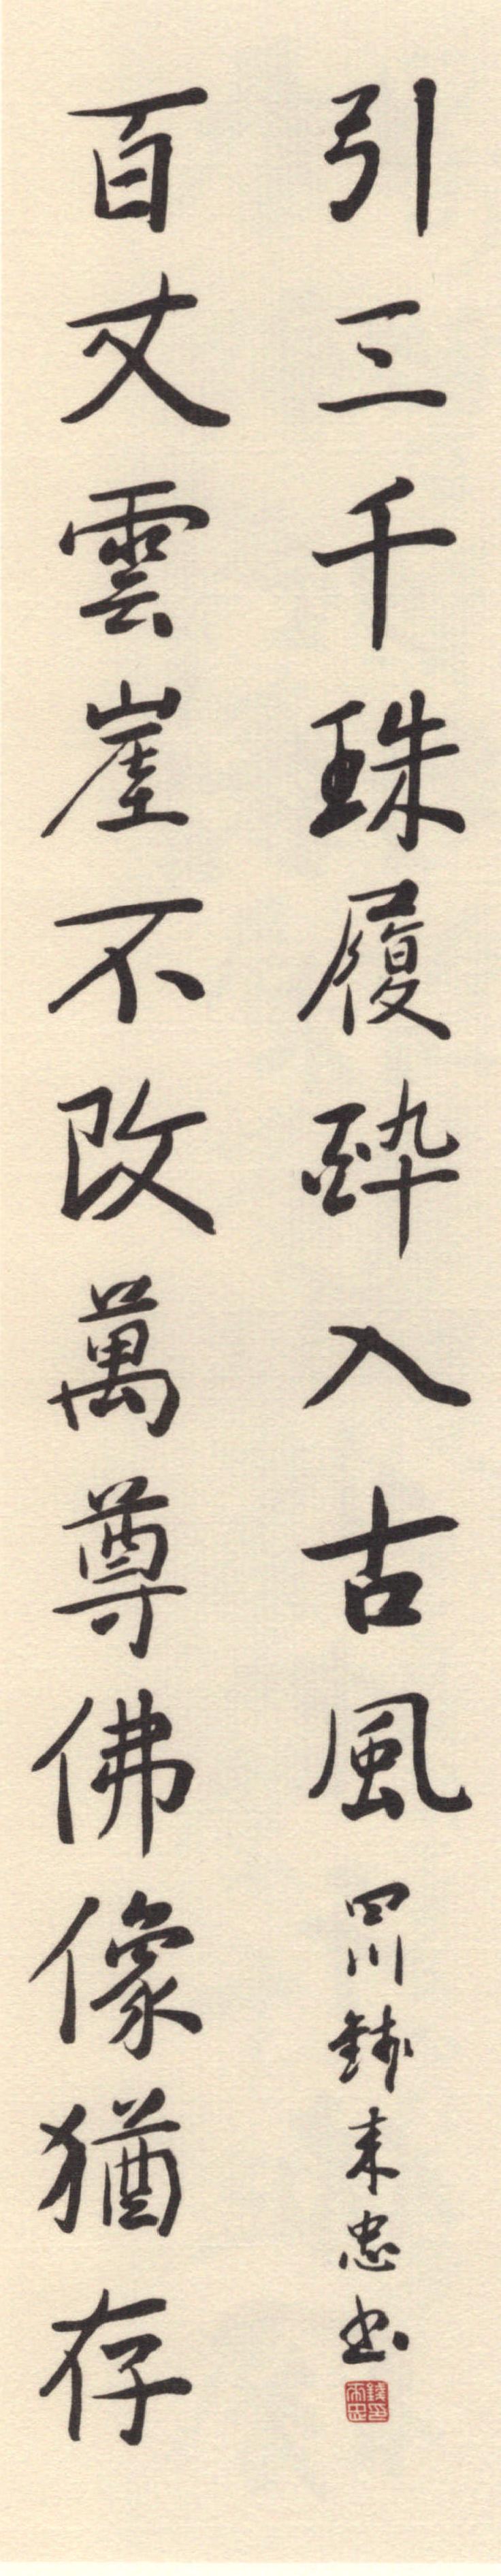 百丈雲崖不改萬尊佛像猶存
引三千珠履酔入古風
四川錢来忠书